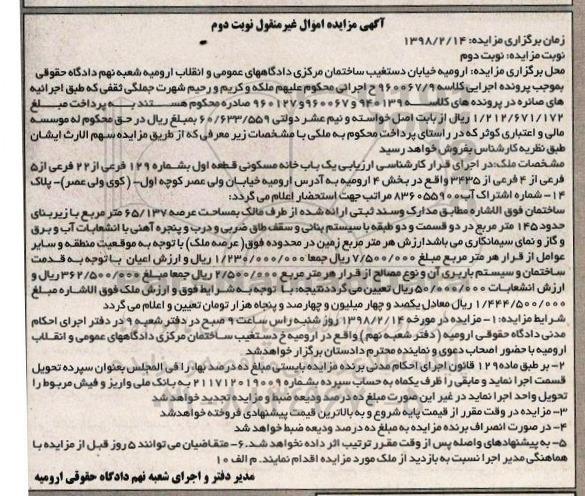 آگهی مزایده اموال غیرمنقول نوبت دوم
زمان برگزاری مزایده: ۱۳۹۸/۲/۱۴
نوبت مزایده: نوبت دوم
محل برگزاری مزایده: ارومیه خیابان دستغیب ساختمان مرکزی دادگاههای عمومی و انقلاب ارومیه شعبه نهم دادگاه حقوقی
بموجب پرونده اجرایی کلاسه ۹۶۰۰۶۷/۹ ح اجرائی محکوم علیهم ملکه و کریم و رحیم شهرت جملگی ثقفی که طبق اجرائیه
های صادره در پرونده های کلاسه ۹۴۰۱۳۹ و ۹۶۰۰۶۷ و ۹۶۰۱۲۷ صادره محکوم هستند به پرداخت مبلغ
۱/۲۱۲/۶۷۱/۱۷۲ ریال از بابت اصل خواسته و نیم عشر دولتی ۶۰/۶۳۳/۵۵۹ بمبلغ ریال در حق محکوم له موسسه
مالی و اعتباری کوثر که در راستای پرداخت محکوم به ملکی با مشخصات زیر معرفی که از طریق مزایده سهم الارث ایشان
طبق نظریه کارشناس بفروش خواهد رسید
مشخصات ملک: در اجرای قرار کارشناسی ارزیابی یک باب خانه مسکونی قطعه اول بشماره ۱۲۹ فرعی از ۲۲ فرعی از ۵
فرعی از ۴ فرعی از ۳۴۳۵ واقع در بخش ۴ ارومیه به آدرس ارومیه خیابان ولی عصر کوچه اول- (کوی ولی عصر)- پلاک
۱۴- شماره اشتراک آب ۸۳۶۰۵۵۹۰۰ مراتب جهت استحضار اعلام می گردد:
ساختمان فوق الاشاره مطابق مدارک وسند ثبتی ارائه شده از طرف مالک بمساحت عرصه ۶۵/۱۳۷ متر مربع با زیربنای
حدود ۱۴۵ متر مربع در دو قسمت و دو طبقه با سیستم بنائی و سقف طاق ضربی و درب و پنجره آهنی با انشعابات آب و برق
و گاز و نمای سیمانکاری می باشد ارزش هر متر مربع زمین در محدوده فوق (عرصه ملک) با توجه به موقعیت منطقه و سایر
عوامل از قرار هر متر مربع مبلغ ۷/۵۰۰/۰۰۰ جمعا مبلغ ۱/۲۳۰/۰۰۰/۰۰۰ ریال و ارزش اعیان با توجه به قدمت
ساختمان و سیستم باربری آن و نوع مصالح از قرار هر متر مربع ۲/۵۰۰/۰۰۰ ریال جمعا مبلغ ۳۶۲/۵۰۰/۰۰۰ ریال و
ارزش انشعابات ۵۰/۰۰۰/۰۰۰ ریال تعیین می گردد نتیجه: با توجه به شرایط فوق و ارزش ملک فوق الاشاره مبلغ
۱/۴۴۴/۵۰۰/۰۰۰ ریال معادل یکصد و چهار میلیون و چهارصد و پنجاه هزار تومان تعیین و اعلام می گردد
شرایط مزایده: ۱- مزایده در مورخه ۱۳۹۸/۲/۱۴ روز شنبه راس ساعت ۹ صبح در دفتر شعبه ۹ در دفتر اجرای احکام
مدنی دادگاه حقوقی ارومیه (دفتر شعبه نهم) واقع در ارومیه خ دستغیب ساختمان مرکزی دادگاههای عمومی و انقلاب
ارومیه با حضور اصحاب دعوی و نماینده محترم دادستان برگزار خواهد شد
۲- بر طبق ماده ۱۲۹ قانون اجرای احکام مدنی برنده مزایده بایستی مبلغ ده درصد بها، را فی المجلس بعنوان سپرده تحویل
قسمت اجرا نماید و مابقی را ظرف یکماه به حساب سپرده بشماره ۲۱۱۷۱۲۰۱۹۰۰۹ به بانک ملی واریز و فیش مربوط را
تحویل واحد اجرا نماید در غیر این صورت مبلغ ده درصد ودیعه ضبط و مزایده تجدید خواهد شد
۳- مزایده در وقت مقرر از قیمت پایه شروع و به بالاترین قیمت پیشنهادی فروخته خواهد شد
۴- در صورت انصراف برنده مزایده به مبلغ ده درصد ودیعه ضبط خواهد شد
۵- به پیشنهادهای واصله پس از وقت مقرر ترتیب اثر داده نخواهد شد. ۶- متقاضیان می توانند ۵ روز قبل از مزایده با
هماهنگی مدیر اجرا نسبت به بازدید از ملک مورد مزایده اقدام نمایند. م الف ۱۰
مدیر دفتر و اجرای شعبه نهم دادگاه حقوقی ارومیه